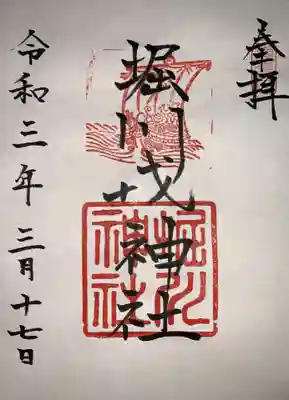 奉拝
堀川戎神社
堀川
神社
令和三年三月十七日